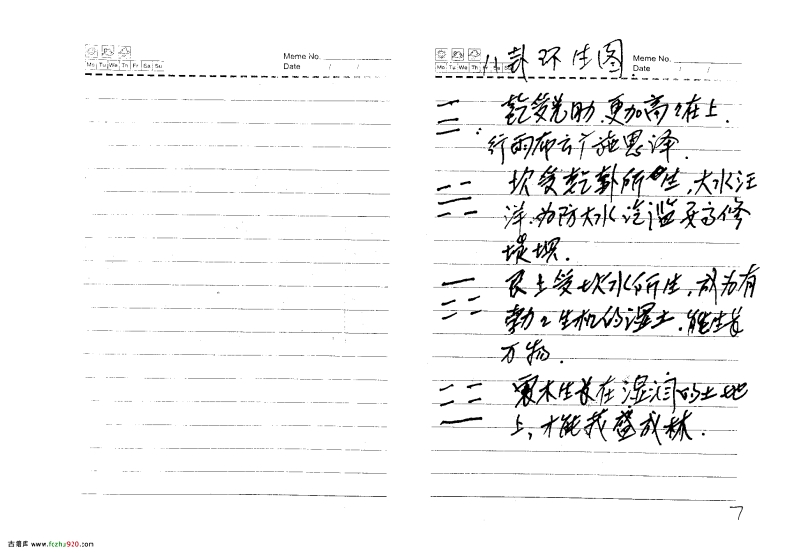 Mo Tu We Th Fr Sa Su
Meme No.
Date / /
Mo Tu We Th Fr Sa Su
Meme No.
Date / /
八卦环生图
乾受兑助、更加高々在上.
行雨布云广施恩泽.
坎受乾卦所生，大水汪
洋、为防大水泛滥要高修
堤坝.
艮土受坎水所生，成为有
勃々生机的湿土.能生长
万物.
震木生长在湿润的土地
上，才能茂盛成林.
7
古籍库 www.fozhu920.com